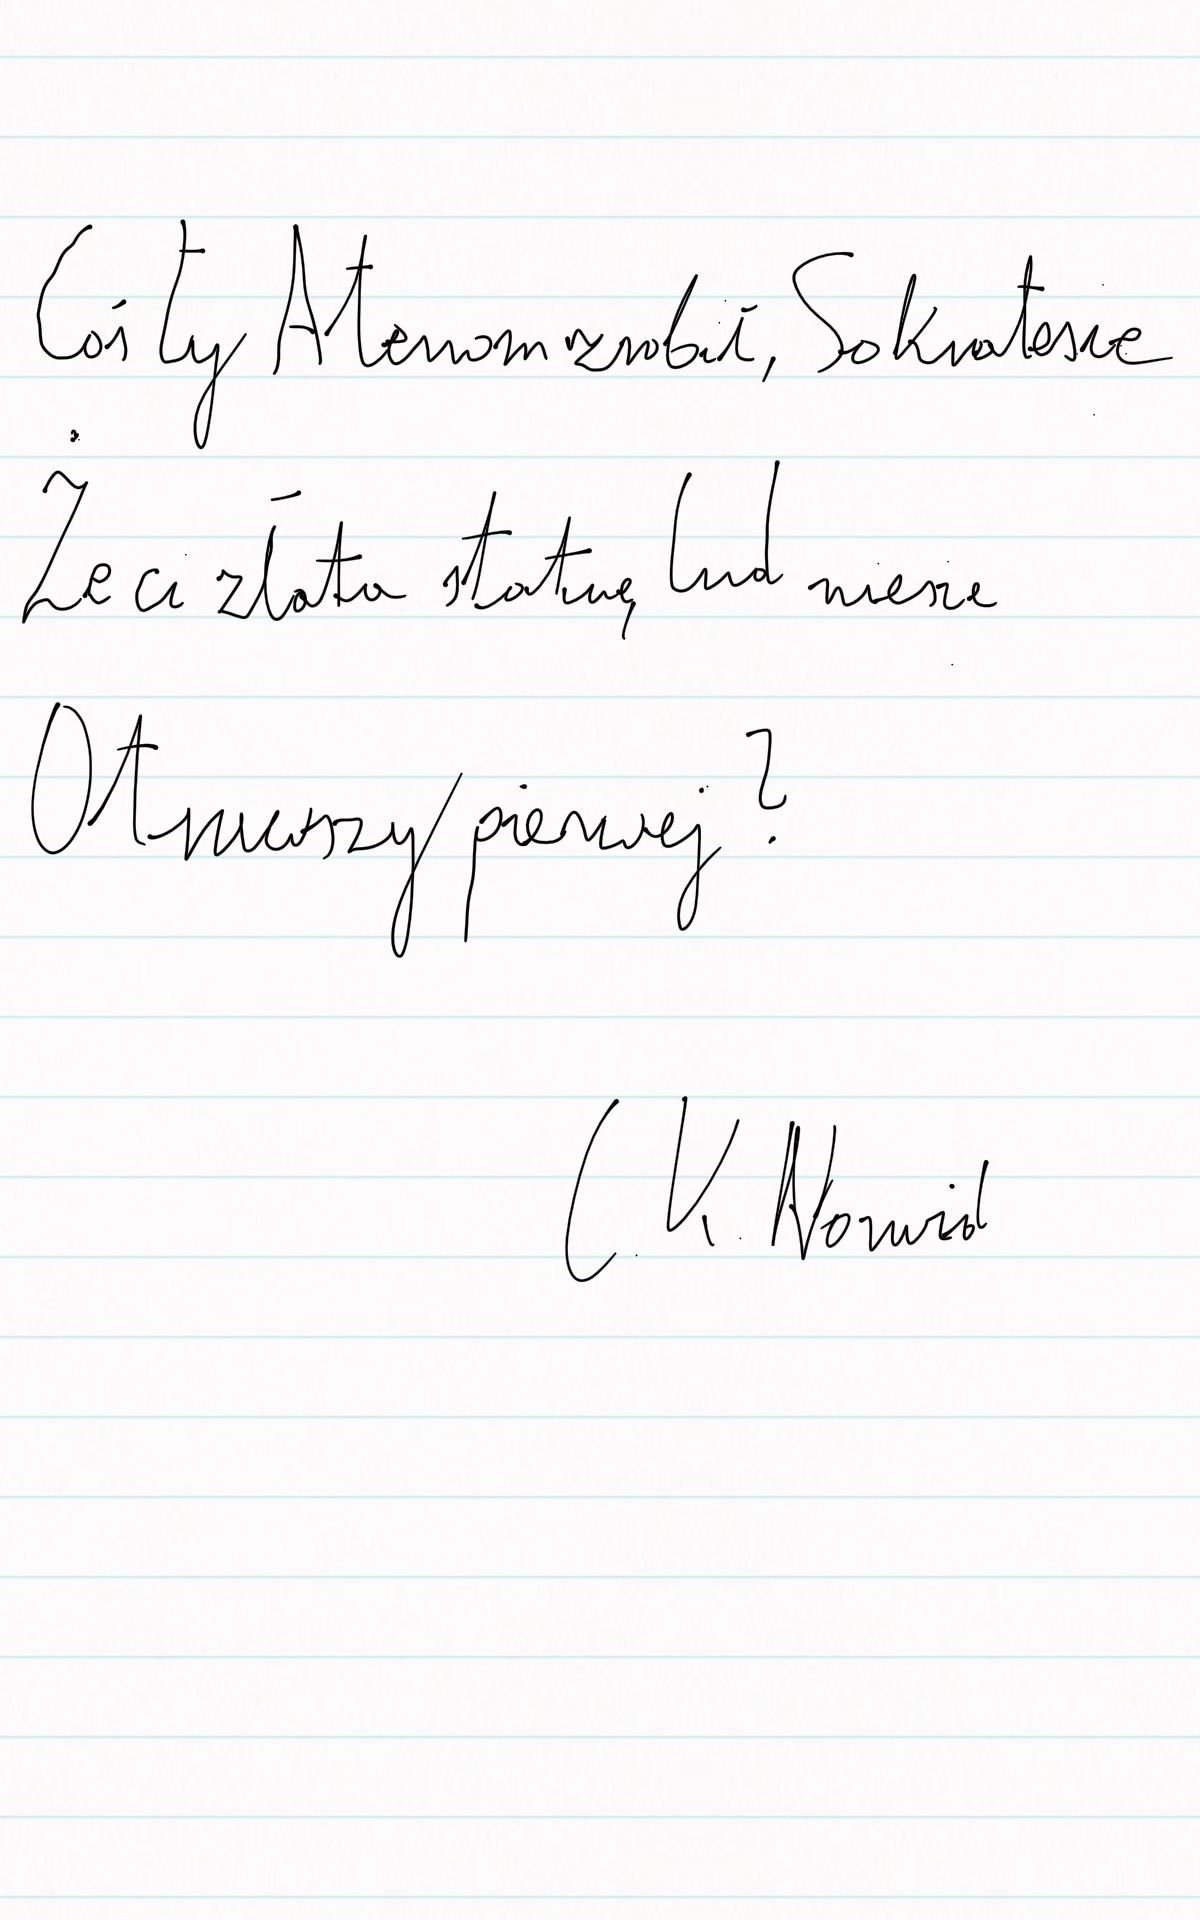 Coś ty Atenom zrobił, Sokratesie
Że ci złota statuę lud niesie
Otruwszy pierwej?
C. K. Norwid